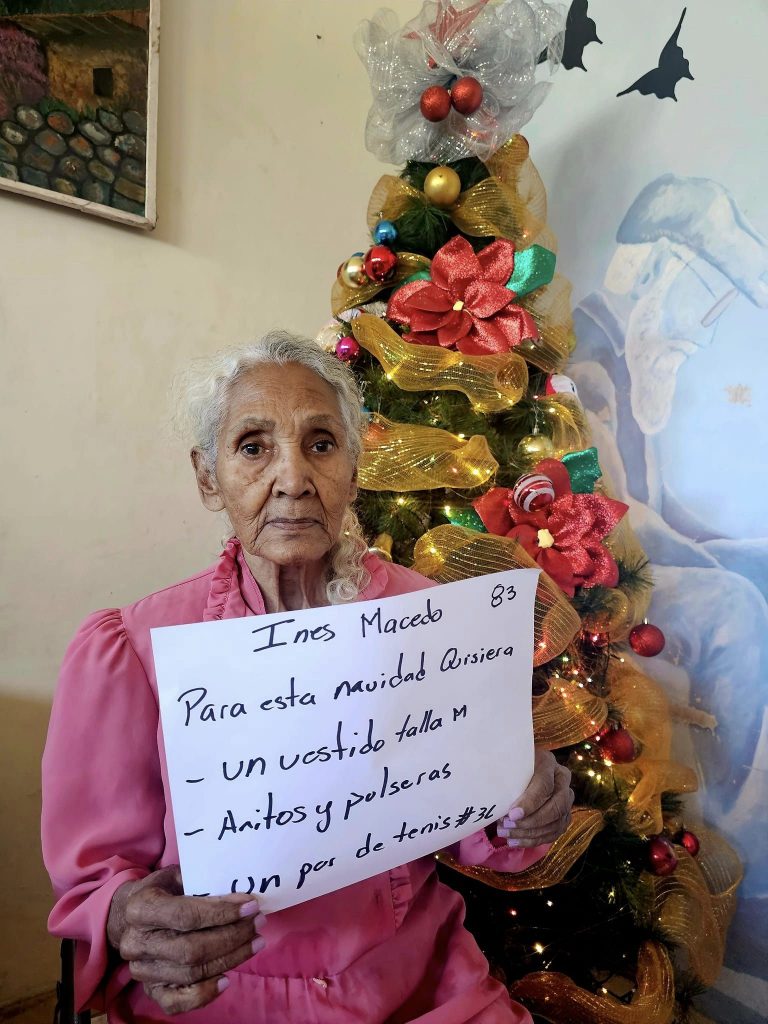 Ines Macedo 83
Para esta navidad Quisiera
- un vestido talla M
- Aritos y pulseras
- un par de tenis #36